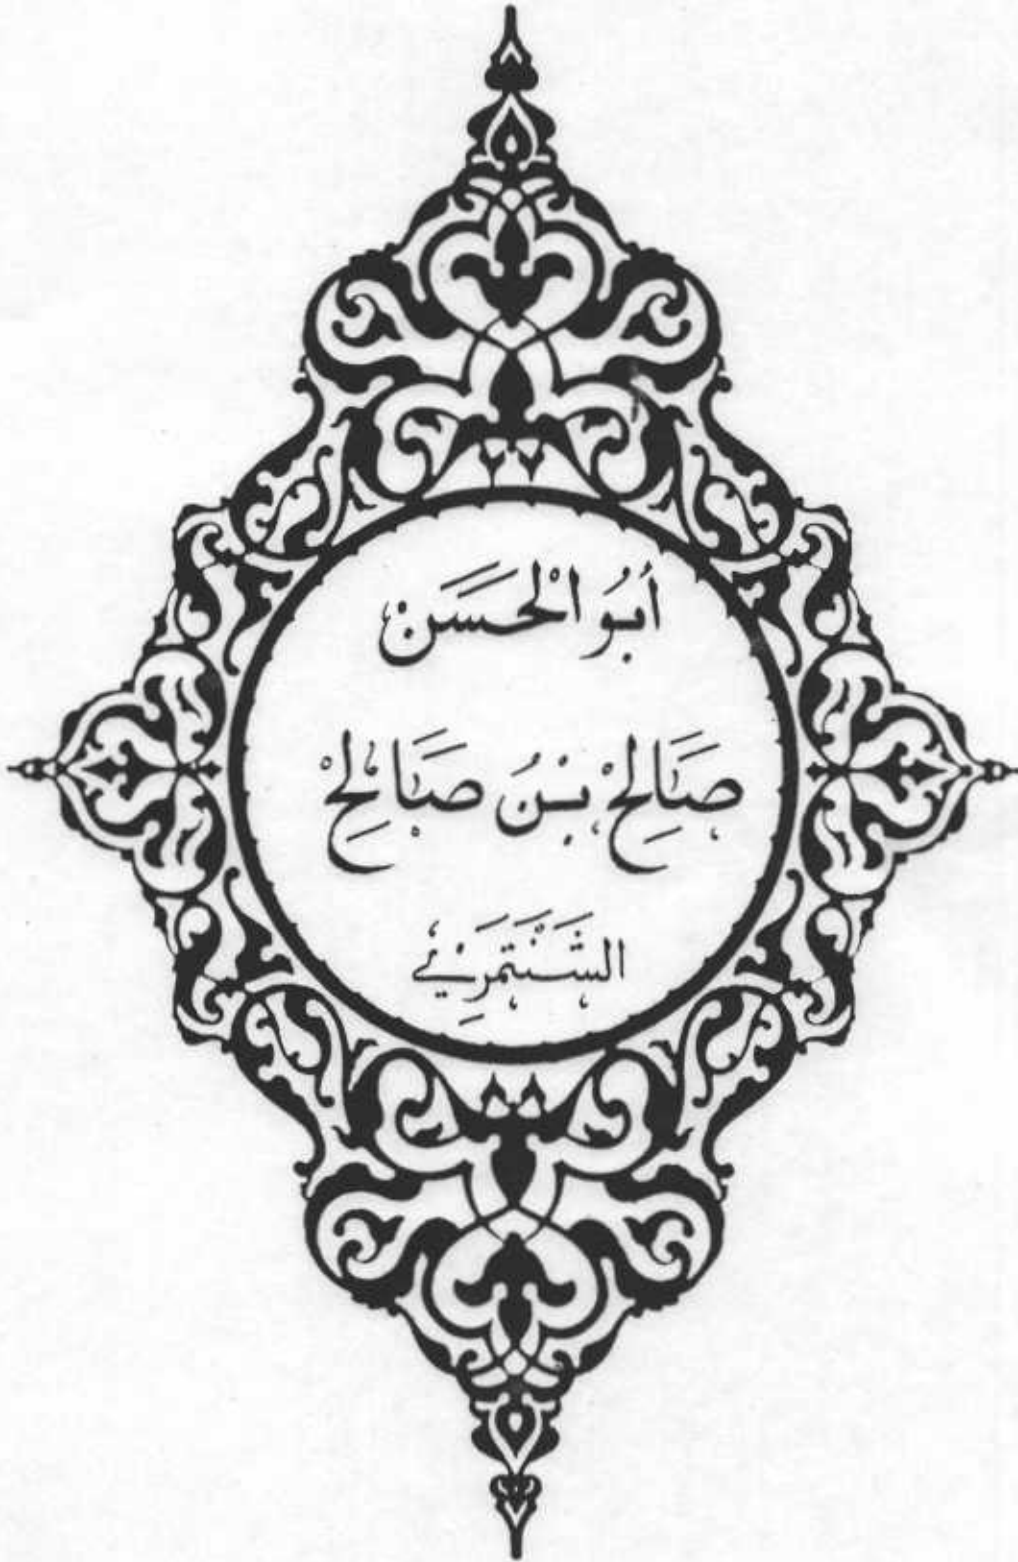 أَبُو الْحَسَنْ
صَالِحْ بْنُ صَالِحْ
الشَّنْتَمَرِيْ